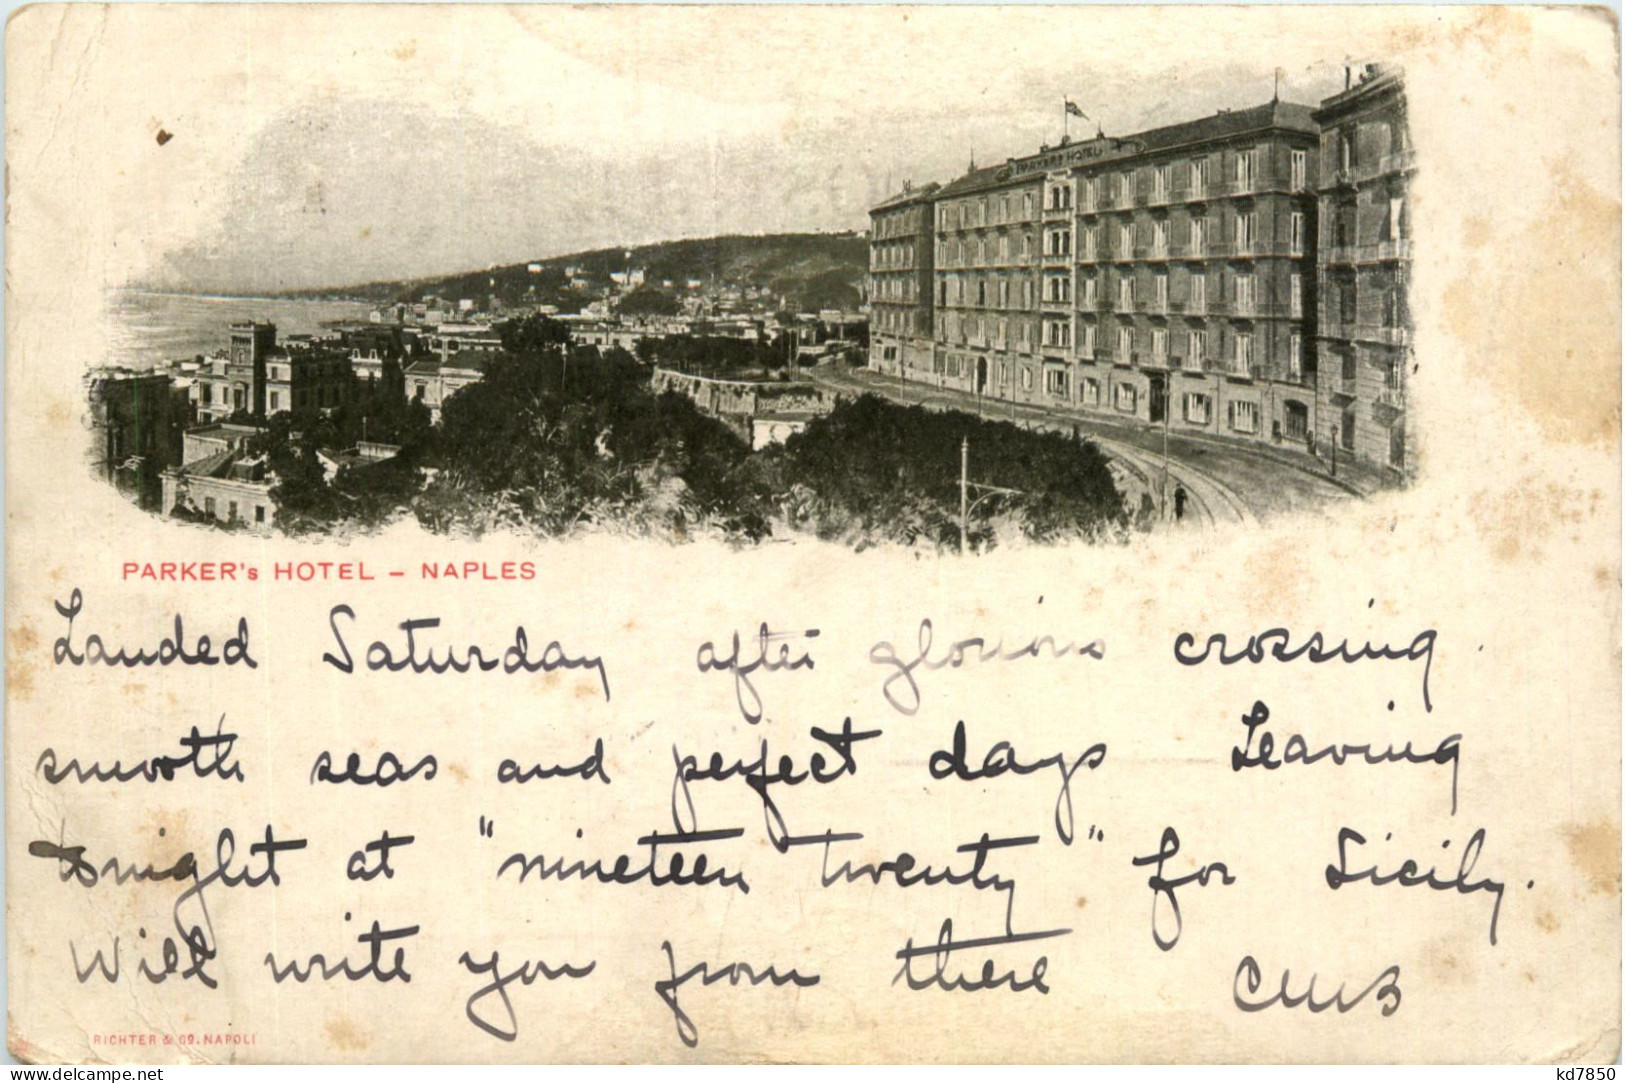 PARKER'S HOTEL
PARKER's HOTEL – NAPLES
Landed Saturday after glorious crossing.
smooth seas and perfect days Leaving
tonight at "nineteen twenty" for Sicily.
Will write you from there
RICHTER & Cº. NAPOLI
kd7850